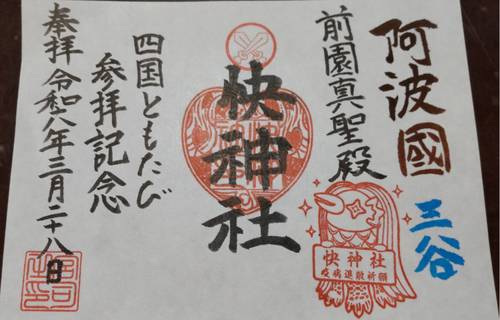 阿波國
三谷
前園真聖殿
快神社
快神社
疫病退散祈願
四国ともたび
参拝記念
奉拝 令和八年三月二十八日